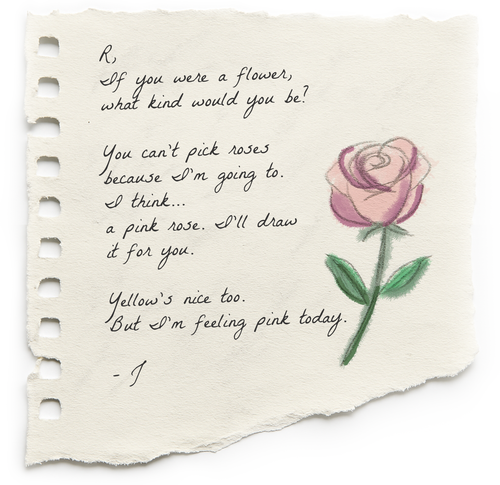 R,
If you were a flower,
what kind would you be?
You can't pick roses
because I'm going to.
I think...
a pink rose. I'll draw
it for you.
Yellow's nice too.
But I'm feeling pink today.
- J